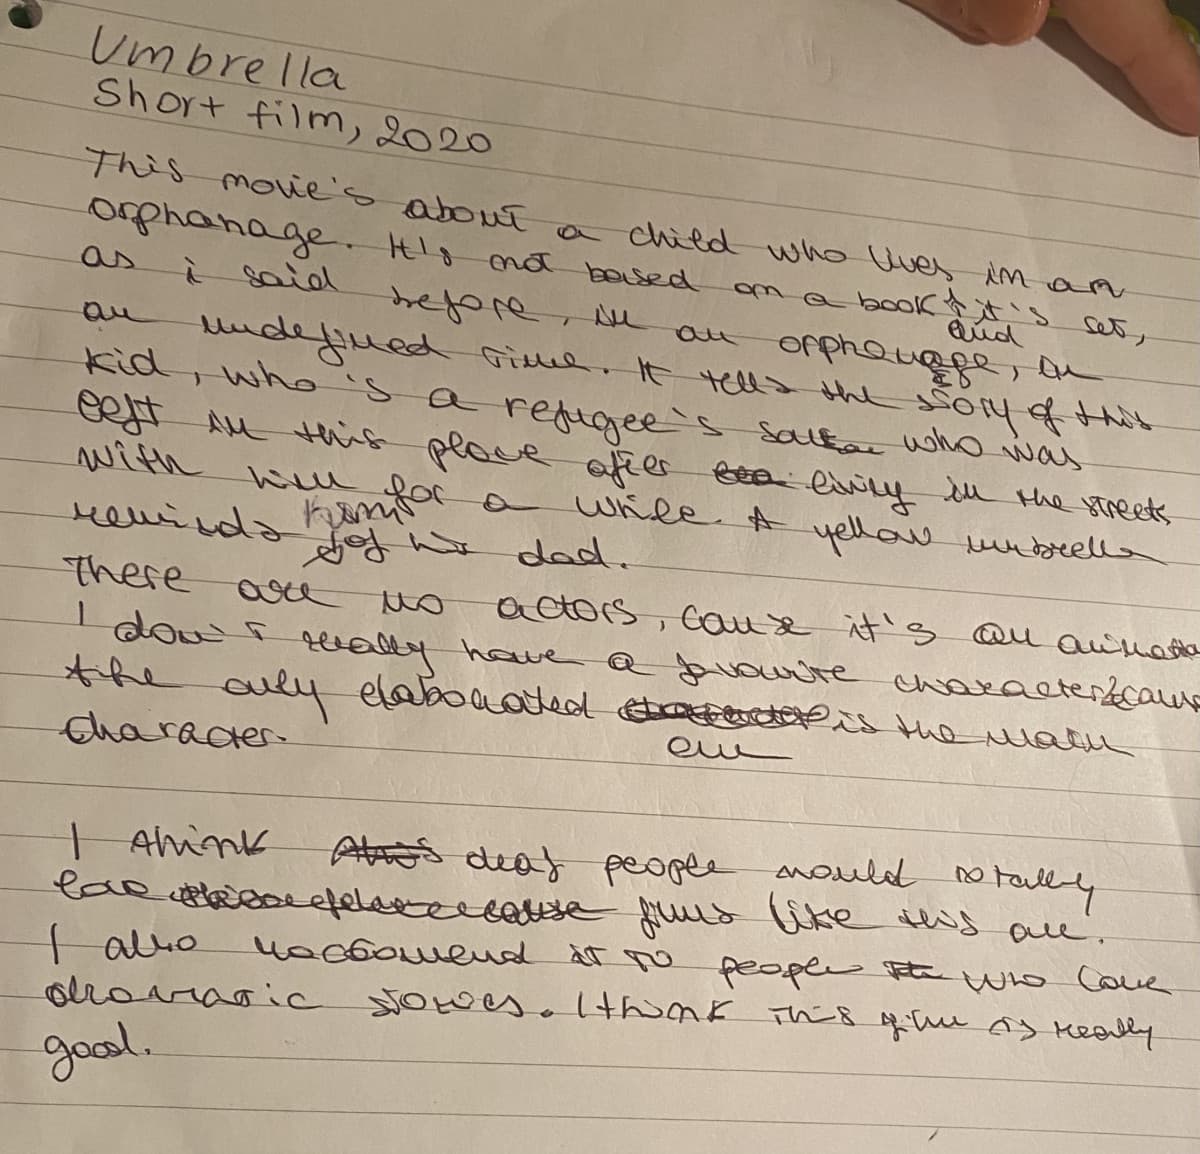 Umbrella
Short film, 2020
This movie's about a child who lives in an
orphanage. It's not based on a book & it's set,
as i said before, in an orphanage, and in
an undefined time. It tells the story of this
kid, who's a refugee's son who was
left in this place after living in the streets
with him for a while. A yellow umbrella
reminds him of his dad.
There are no actors, cause it's an animation
I don't really have a favourite character cause
the only elaborated one is the main
character.
I think deaf people would totally
love films like this one.
I also raccomend it to people who love
dramatic stories. I think this film is really
good.